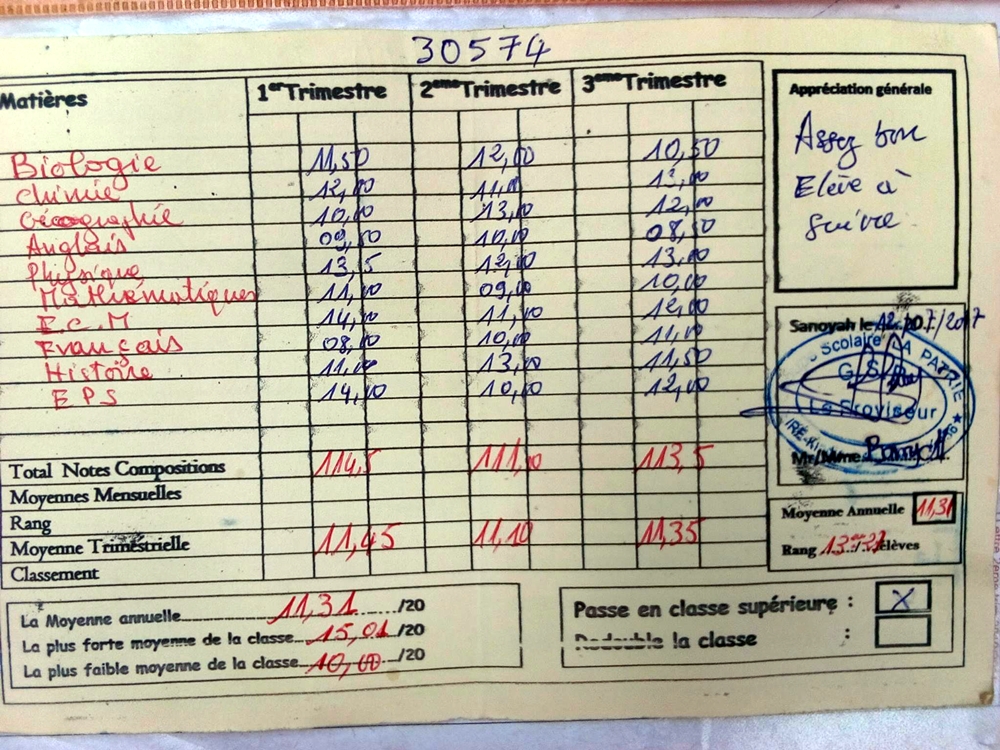 30574
Matières 1er Trimestre 2eme Trimestre 3eme Trimestre
Biologie 11,50 12,00 10,50
Chimie 12,00 11,00 13,00
Géographie 10,00 13,00 12,00
Anglais 09,50 10,00 08,50
Physique 13,5 12,00 13,00
Mathématiques 11,00 09,00 10,00
E.C.M 14,00 11,00 12,00
Français 08,00 10,00 11,00
Histoire 11,00 13,00 11,50
EPS 14,00 10,00 12,00
Total Notes Compositions 114,5 111,0 113,5
Moyennes Mensuelles
Rang
Moyenne Trimestrielle 11,45 11,10 11,35
Classement
La Moyenne annuelle 11,31 /20
La plus forte moyenne de la classe 15,01 /20
La plus faible moyenne de la classe 10,00 /20
Passe en classe supérieure : X
Redouble la classe :
Appréciation générale
Assez bon
Elève à
suivre
Sanoyah le 12/07/2017
Scolaire LA PATRIE
G.S.P
Le Proviseur
Mr/Mme
Moyenne Annuelle 11,31
Rang 13 élèves